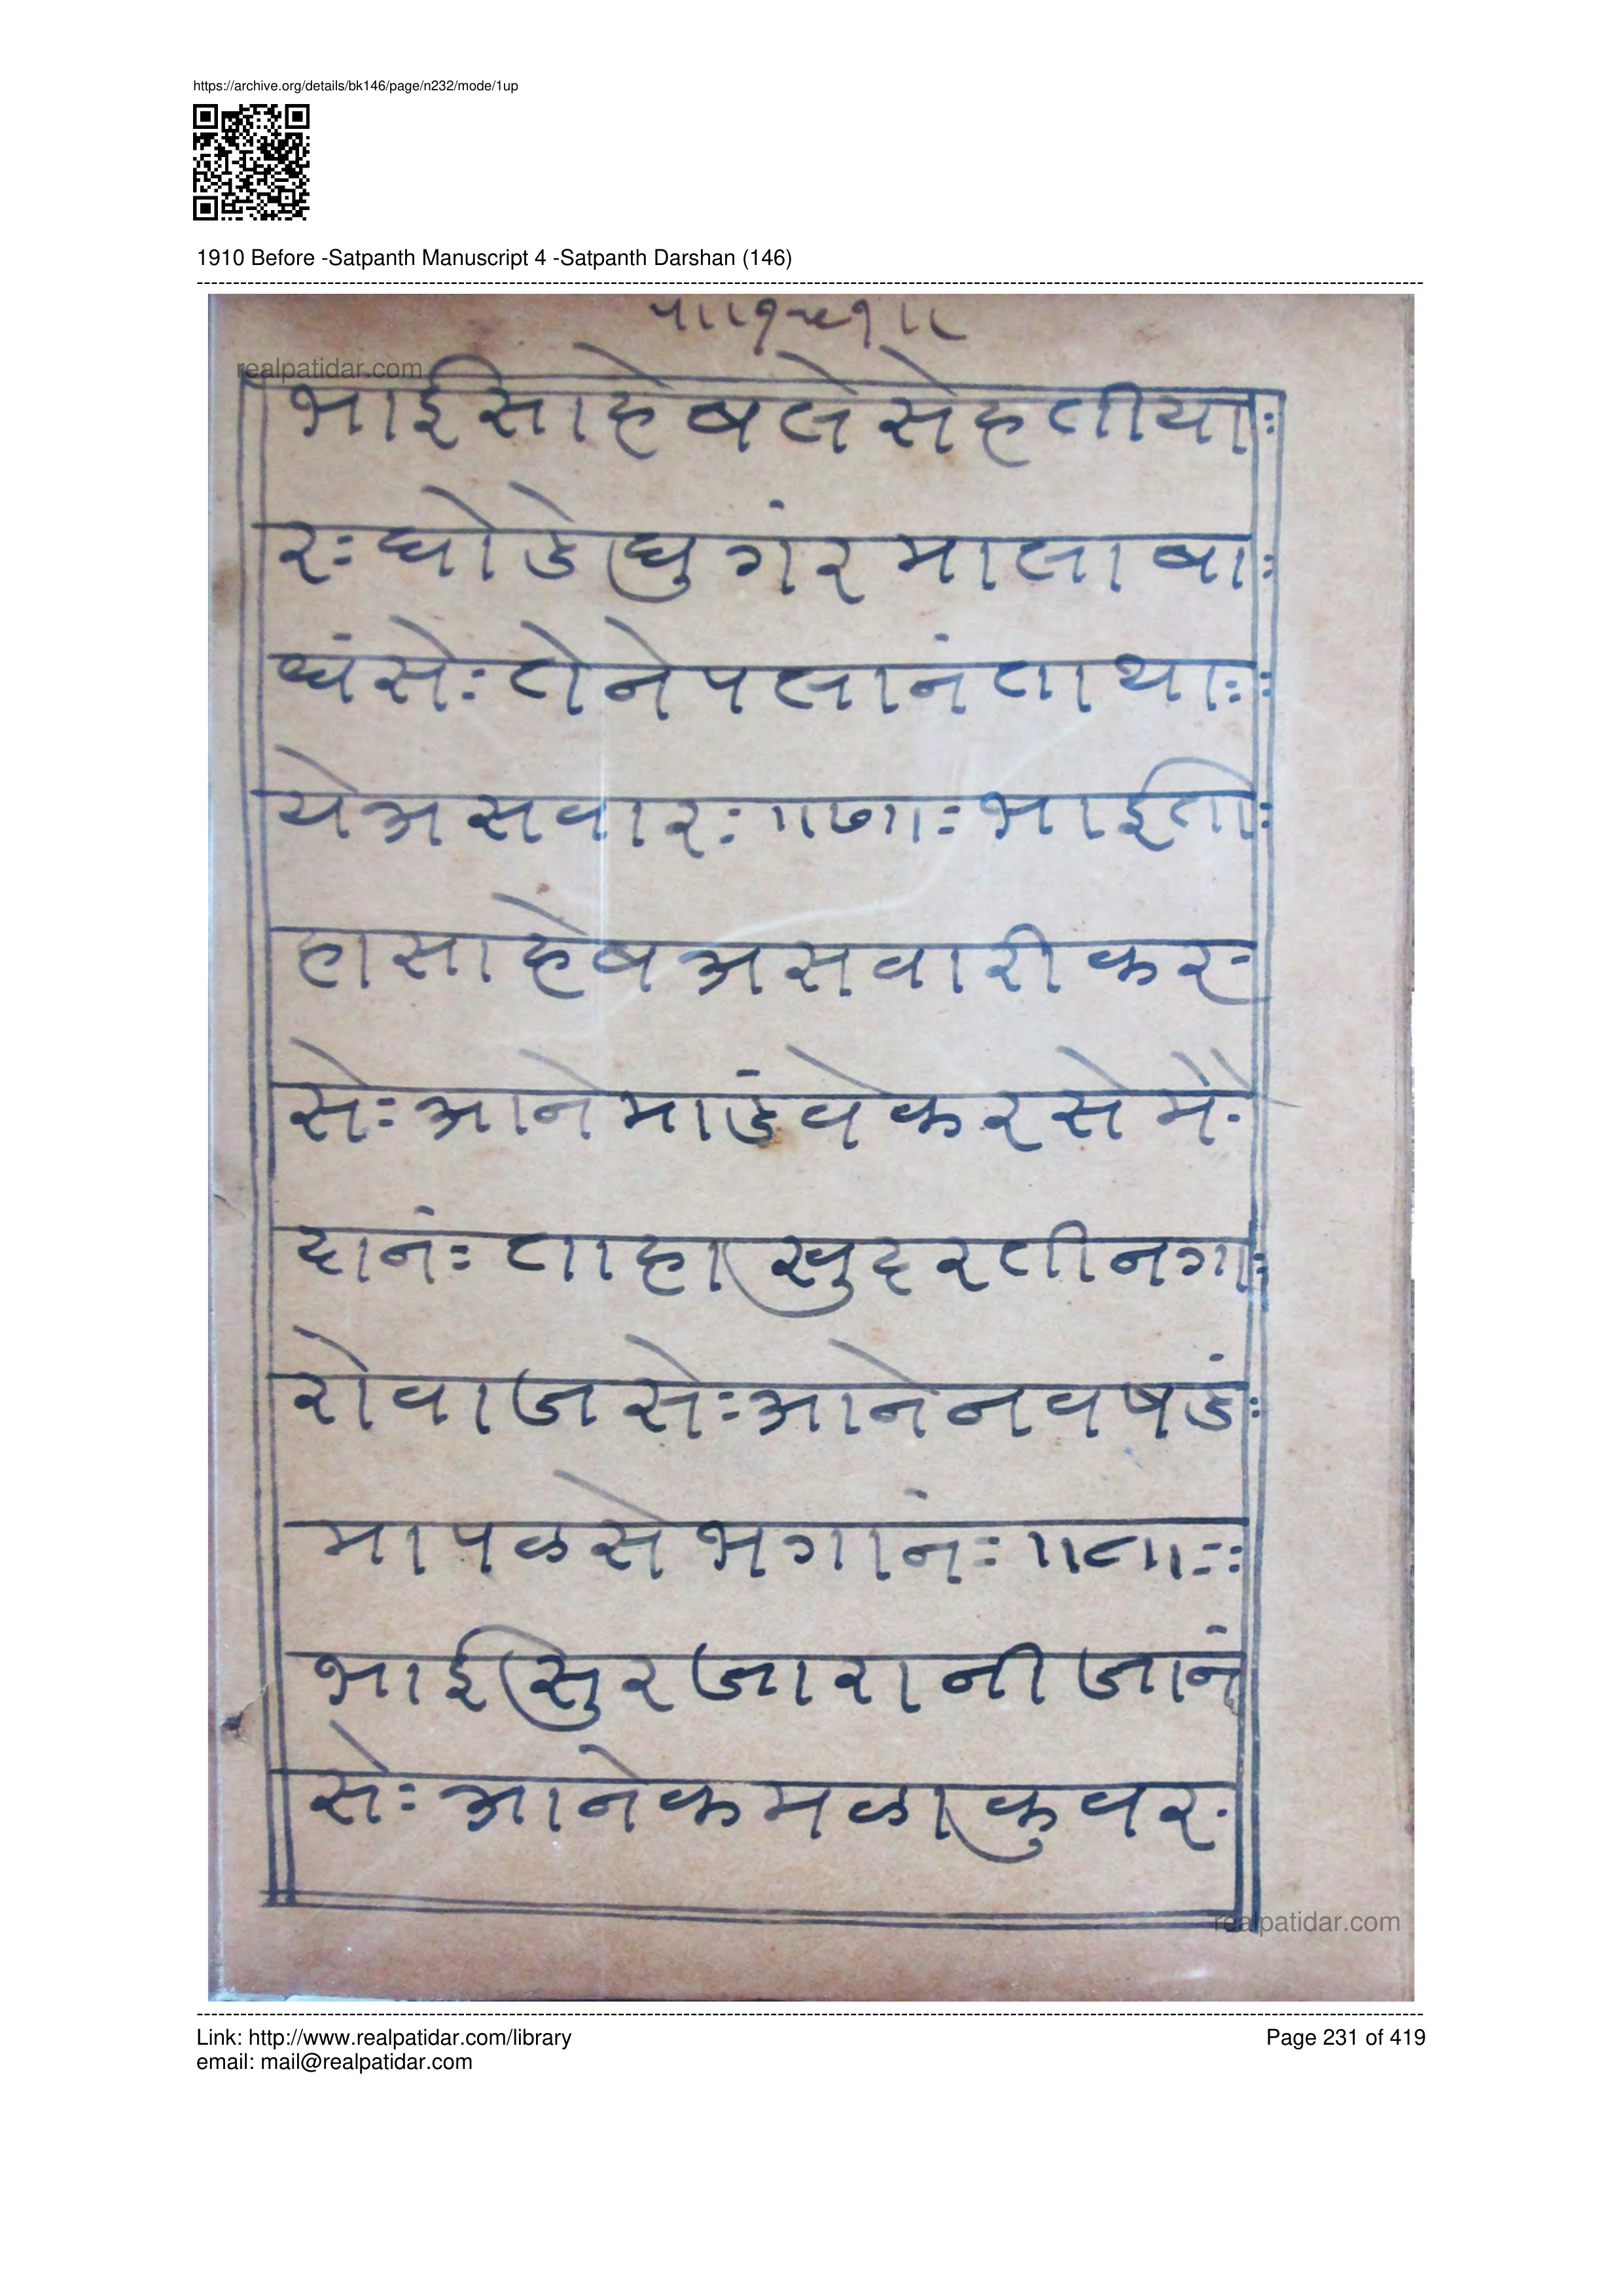 https://archive.org/details/bk146/page/n232/mode/1up
1910 Before -Satpanth Manuscript 4 -Satpanth Darshan (146)
realpatidar.com
भाईसाहेबलेसेहतीयाः
रः घोडेघुगंरमालाबाः
धंसेः तेनेपलानंताथाः
येअसवारः ॥७॥ः भाईतीः
हासाहेबअसवारीकरः
सेः आनेमाडंवेकरसेमैः
दानंः ताहाखुदरतीनगाः
रोवाजसेः आनेनवषडंः
मापळसेभगानंः ॥८॥ः
भाईसुरजारानीजानं
सेः आनेकमळाकुवरः
realpatidar.com
Link: http://www.realpatidar.com/library
Page 231 of 419
email: mail@realpatidar.com